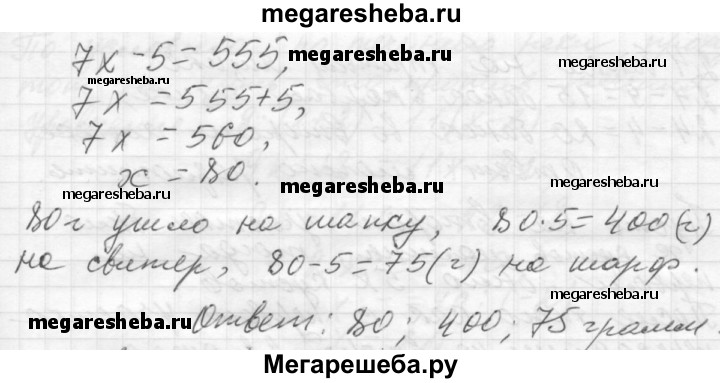 megaresheba.ru
7х - 5 = 555,
megaresheba.ru megaresheba.ru
7х = 555 + 5,
7х = 560,
х = 80.
megaresheba.ru megaresheba.ru megaresheba.ru
80 г ушло на шапку, 80·5 = 400 (г)
на свитер, 80 - 5 = 75 (г) на шарф.
megaresheba.ru Ответ: 80; 400; 75 грамм.
Мегарешеба.ру